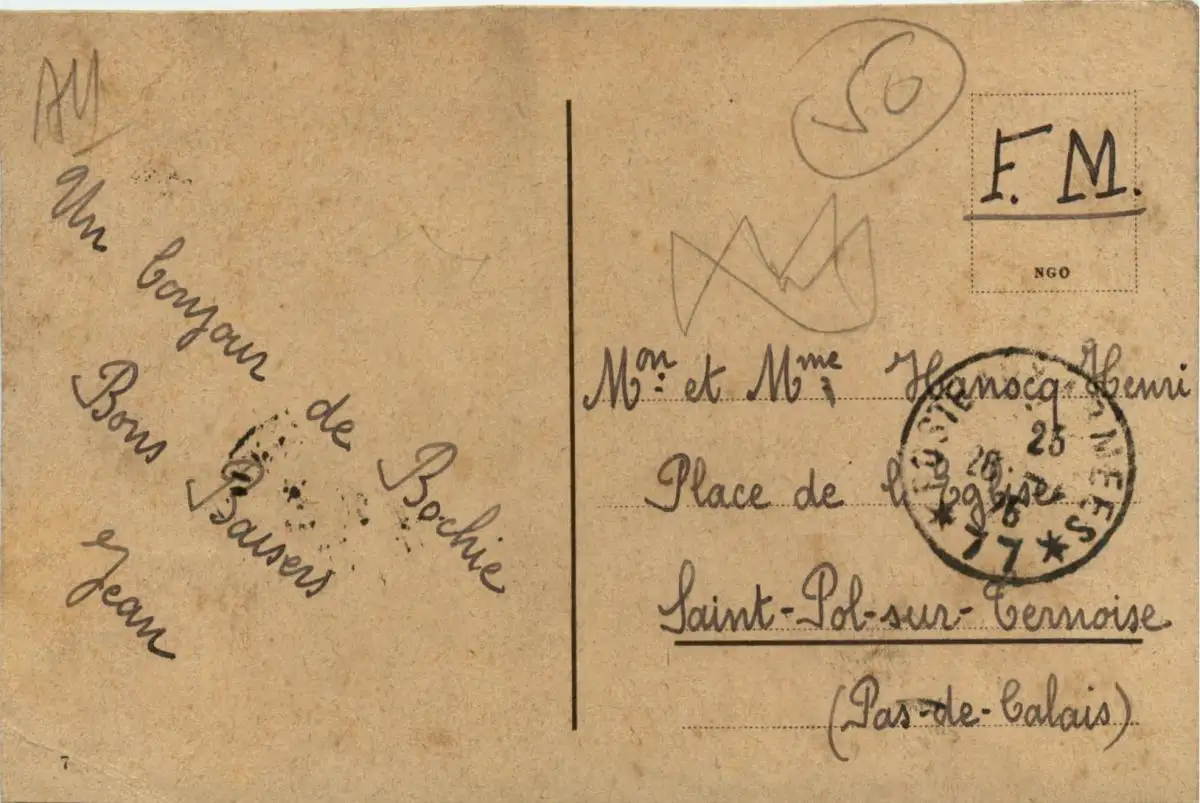 AM
Un bonjour de Bochie
Bons Baisers
Jean
7
50
F. M.
NGO
Mon. et Mme Hanocq-Henri
Place de l'Eglise
Saint-Pol-sur-Ternoise
(Pas-de-Calais)
POSTE AUX ARMEES
23